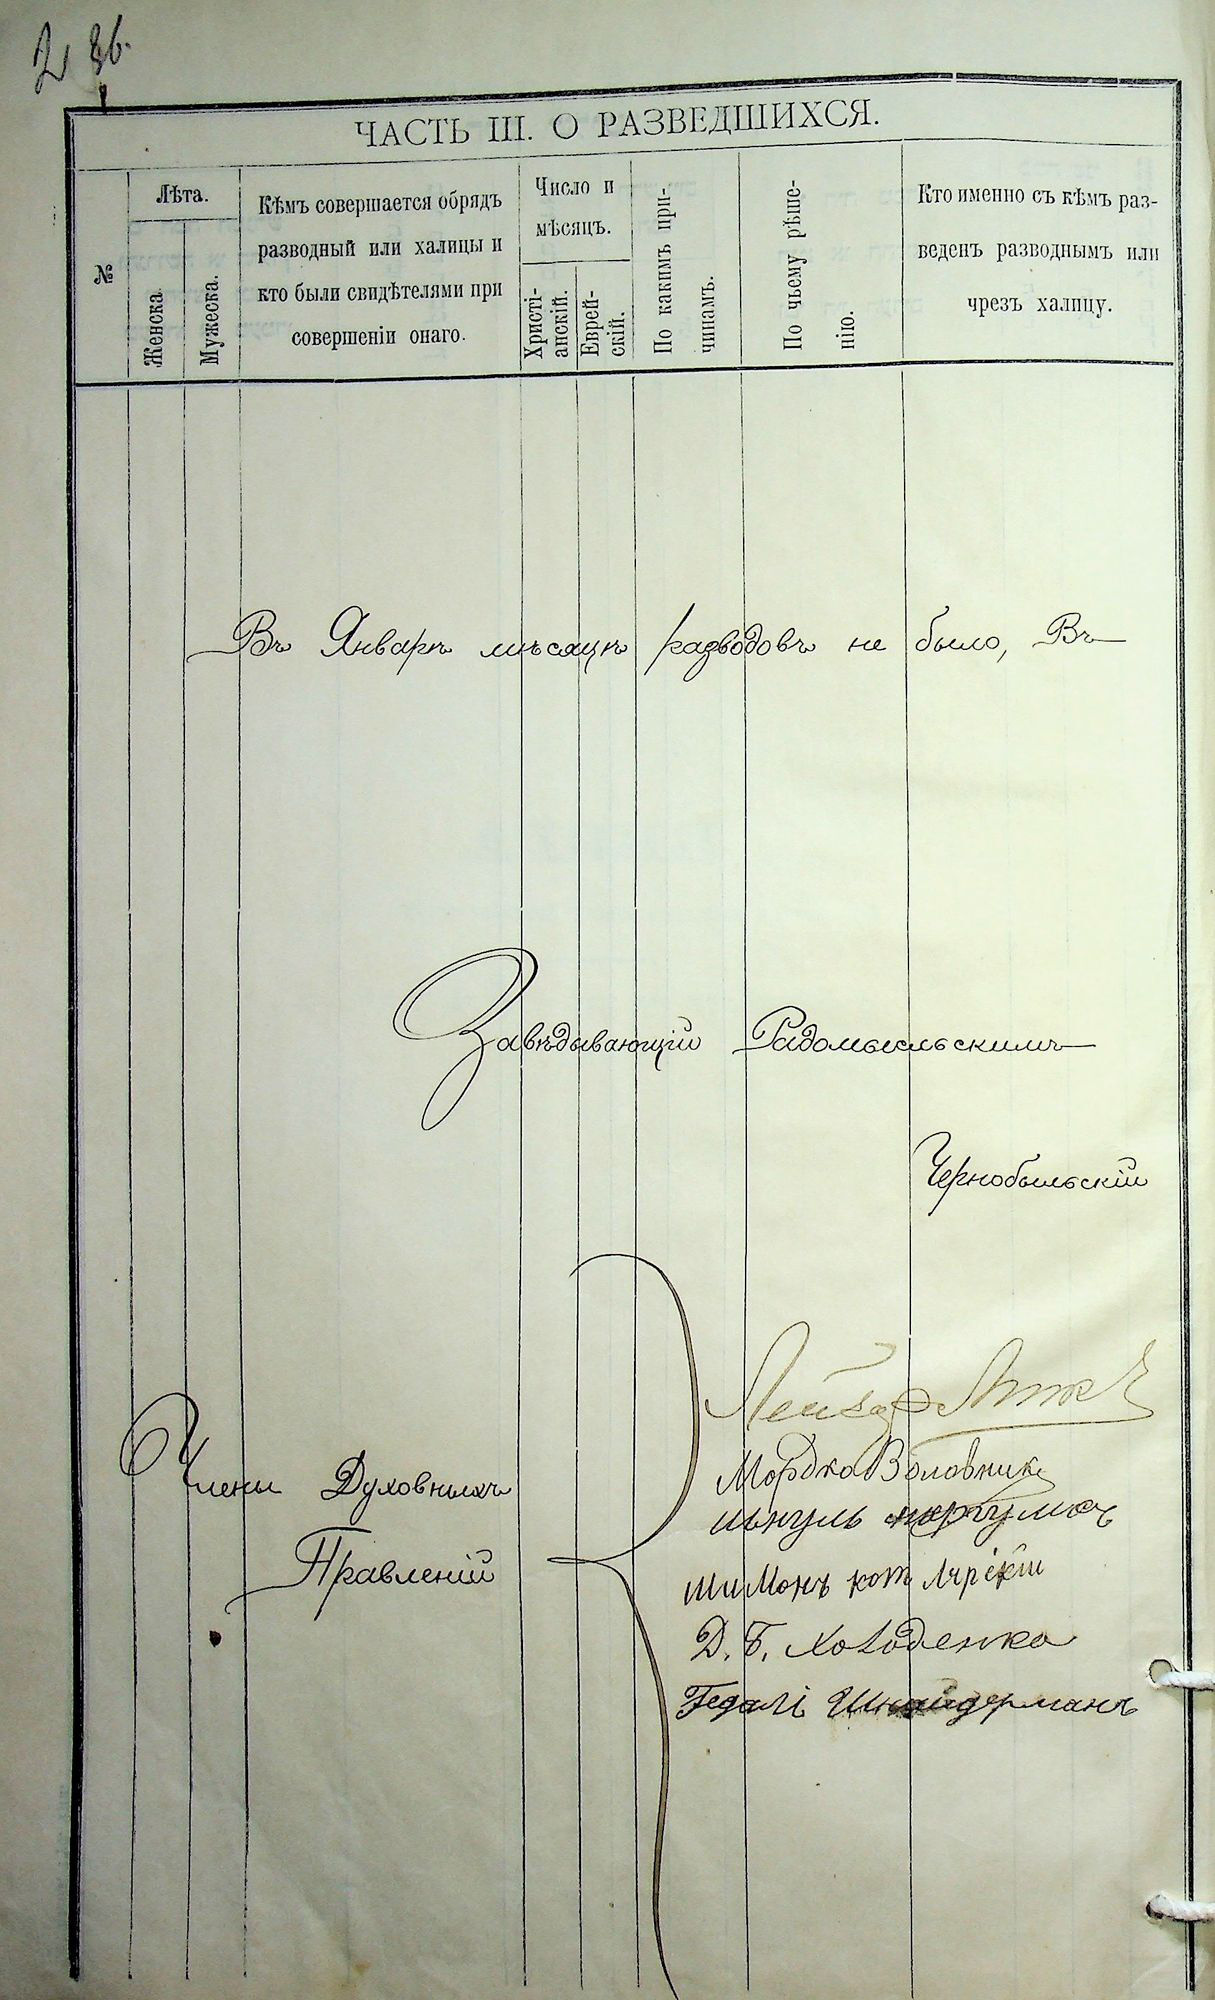 2 об.
ЧАСТЬ III. О РАЗВЕДШИХСЯ.
№
Лѣта.
Женска.
Мужеска.
Кѣмъ совершается обрядъ
разводный или халицы и
кто были свидѣтелями при
совершеніи онаго.
Число и
мѣсяцъ.
Христі-
анскій.
Еврей-
скій.
По какимъ при-
чинамъ.
По чьему рѣше-
нію.
Кто именно съ кѣмъ раз-
веденъ разводнымъ или
чрезъ халицу.
Въ Январѣ мѣсяцѣ разводовъ не было, Въ
Завѣдывающій Радомысльскимъ
Чернобыльскій
Члены Духовныхъ
Правленій
Лейзор
Мордко Воловник
Шимонъ котлярскій
Д. Б. Холоденко
Гедалі Шнайдерманъ